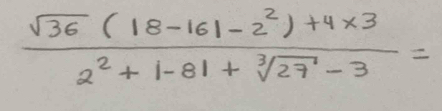 √36 (|8-16|-2²)+4×3
2²+|-8|+∛27-3 =